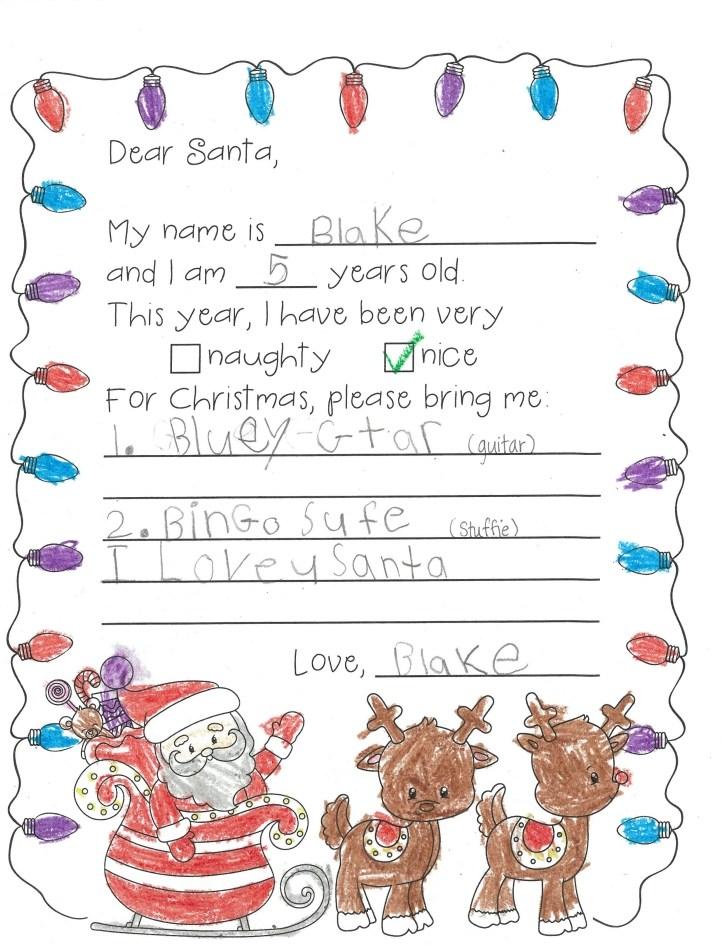 Dear Santa,
My name is Blake
and I am 5 years old.
This year, I have been very
naughty nice
For Christmas, please bring me:
1. Bluey-Gtar (guitar)
2. BinGo sufe (Stuffie)
I Love y Santa
Love, Blake